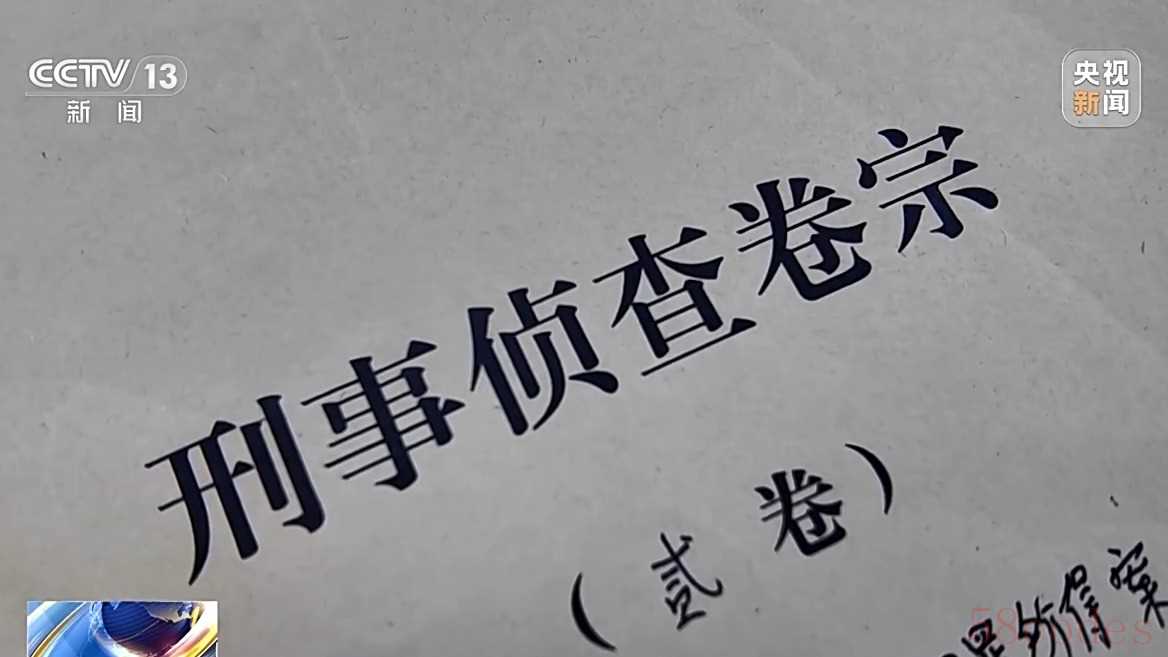 CCTV 13
新闻
央视
新闻
刑事侦查卷宗
(贰卷)